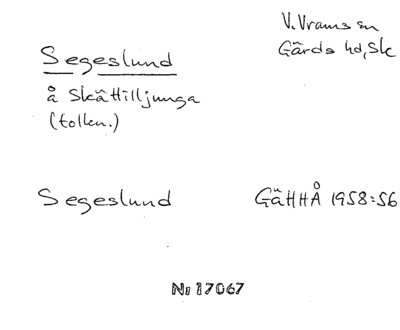 V. Vrams sn
Gärds hd, Sk
Segeslund
å Skättilljunga
(tolkn.)
Segeslund GäHHÅ 1958:56
Nr 17067